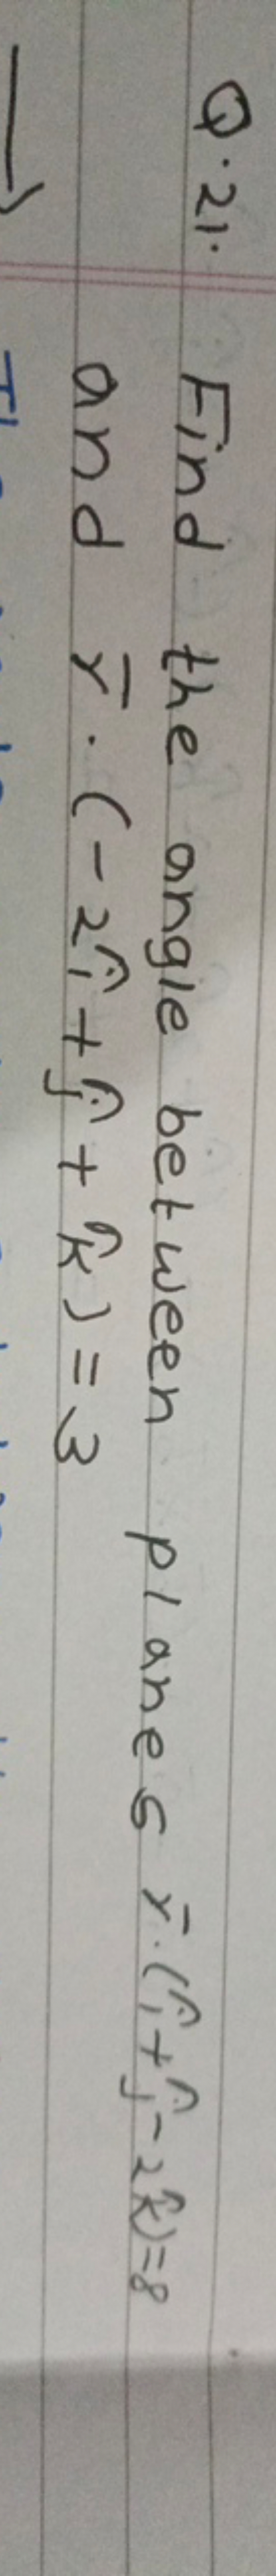 Q.21. Find the angle between planes r̄.(î+ĵ-2k̂)=8
and r̄.(-2î+ĵ+k̂)=3